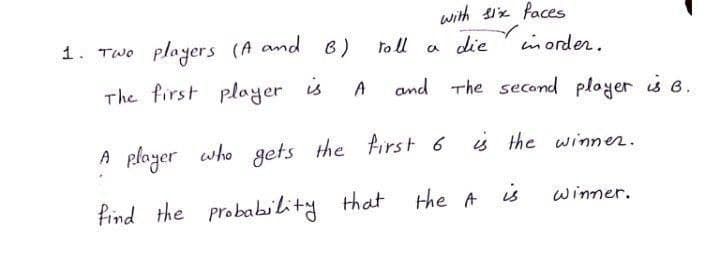 with six faces
1. Two players (A and B) roll a die in order.
The first player is A and The second player is B.
A player who gets the first 6 is the winner.
find the probability that the A is winner.